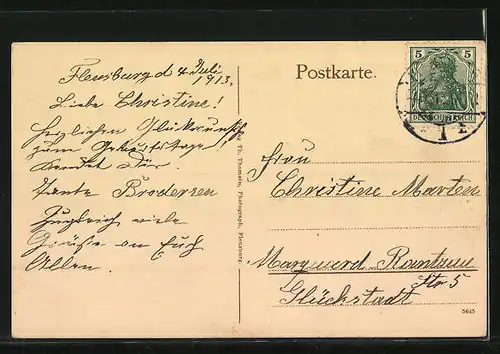 Flensburg d 4 Juli
1913.
Liebe Christine!
Herzlichen Glückwunsch
zum Geburtstage!
sendet Dir
Tante Brodersen
Zugleich viele
Grüsse an Euch
Allen.
Th. Thomsen, Photograph, Flensburg.
Postkarte.
5 5
DEUTSCHES REICH
Frau
Christine Marten
Str 5
Glückstadt
5645